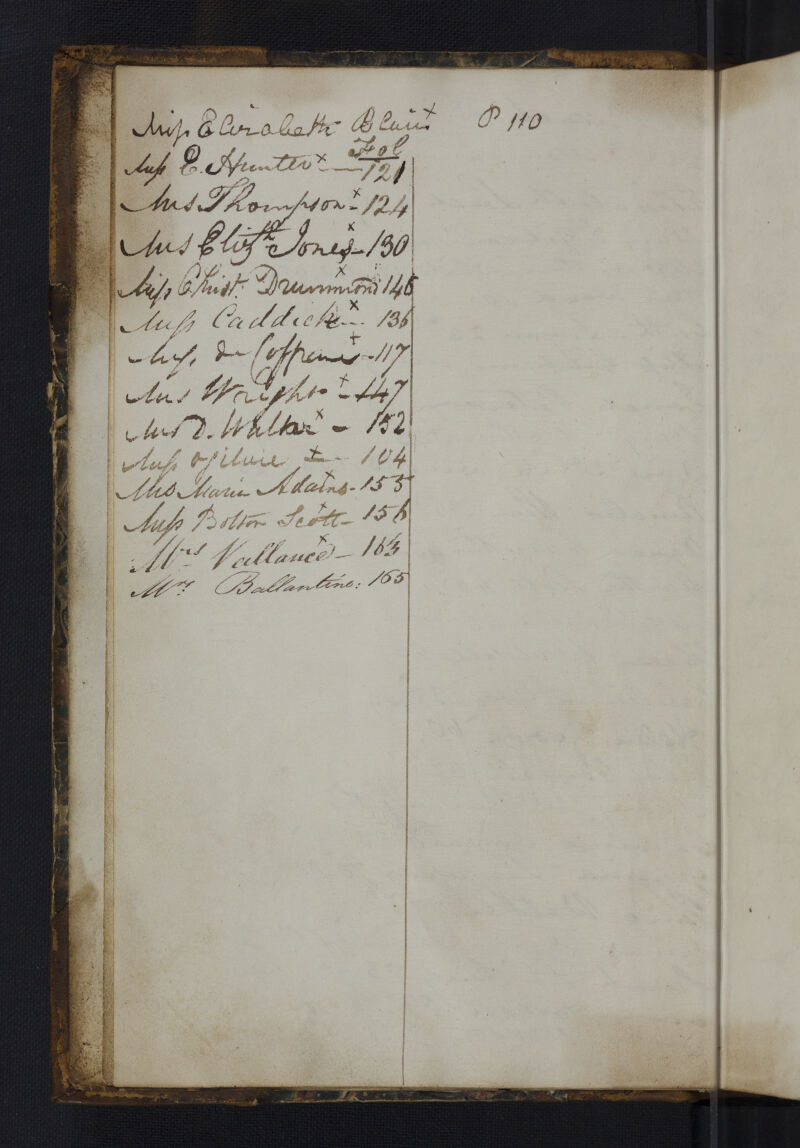 Miss Elizabeth Blair x P 110
Fol
Miss E. Hunter x — 121
Mrs Thompson x - 124
Mrs Elizth Jones x - 130
Miss Christ. Drummond x 146
Miss Caddick x - 136
de x - 117
Mrs Wright x - 147
Mrs D. Walker x - 152
Miss Ogilvie x - 104
Mrs Maria Adams x - 155
Miss Bolton Scott x - 156
Mrs Vallance x - 163
Mrs Ballantine: 165